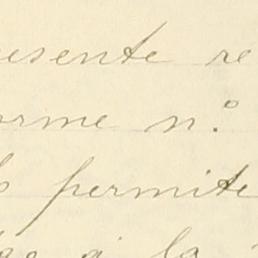 esente re
orme n.º
permite
a la